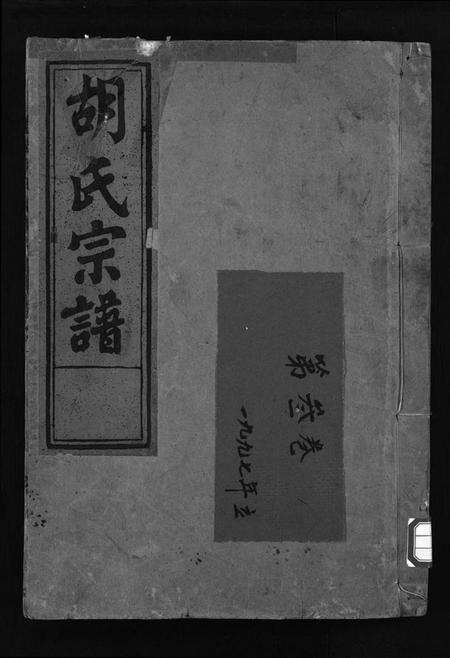 胡氏宗譜
第叁卷
一九九七年立